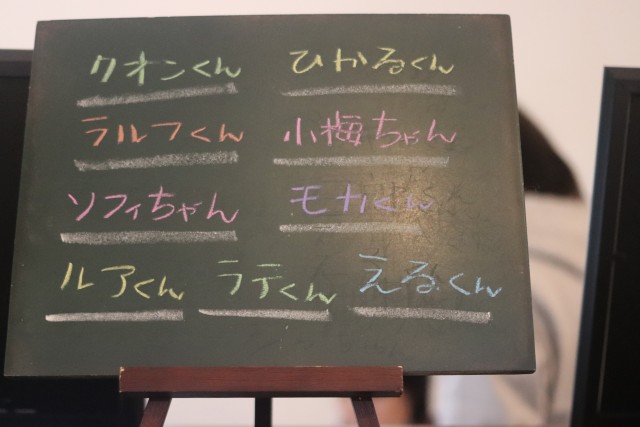 クオンくん ひかるくん
ラルフくん 小梅ちゃん
ソフィちゃん モカくん
ルアくん ラテくん えるくん